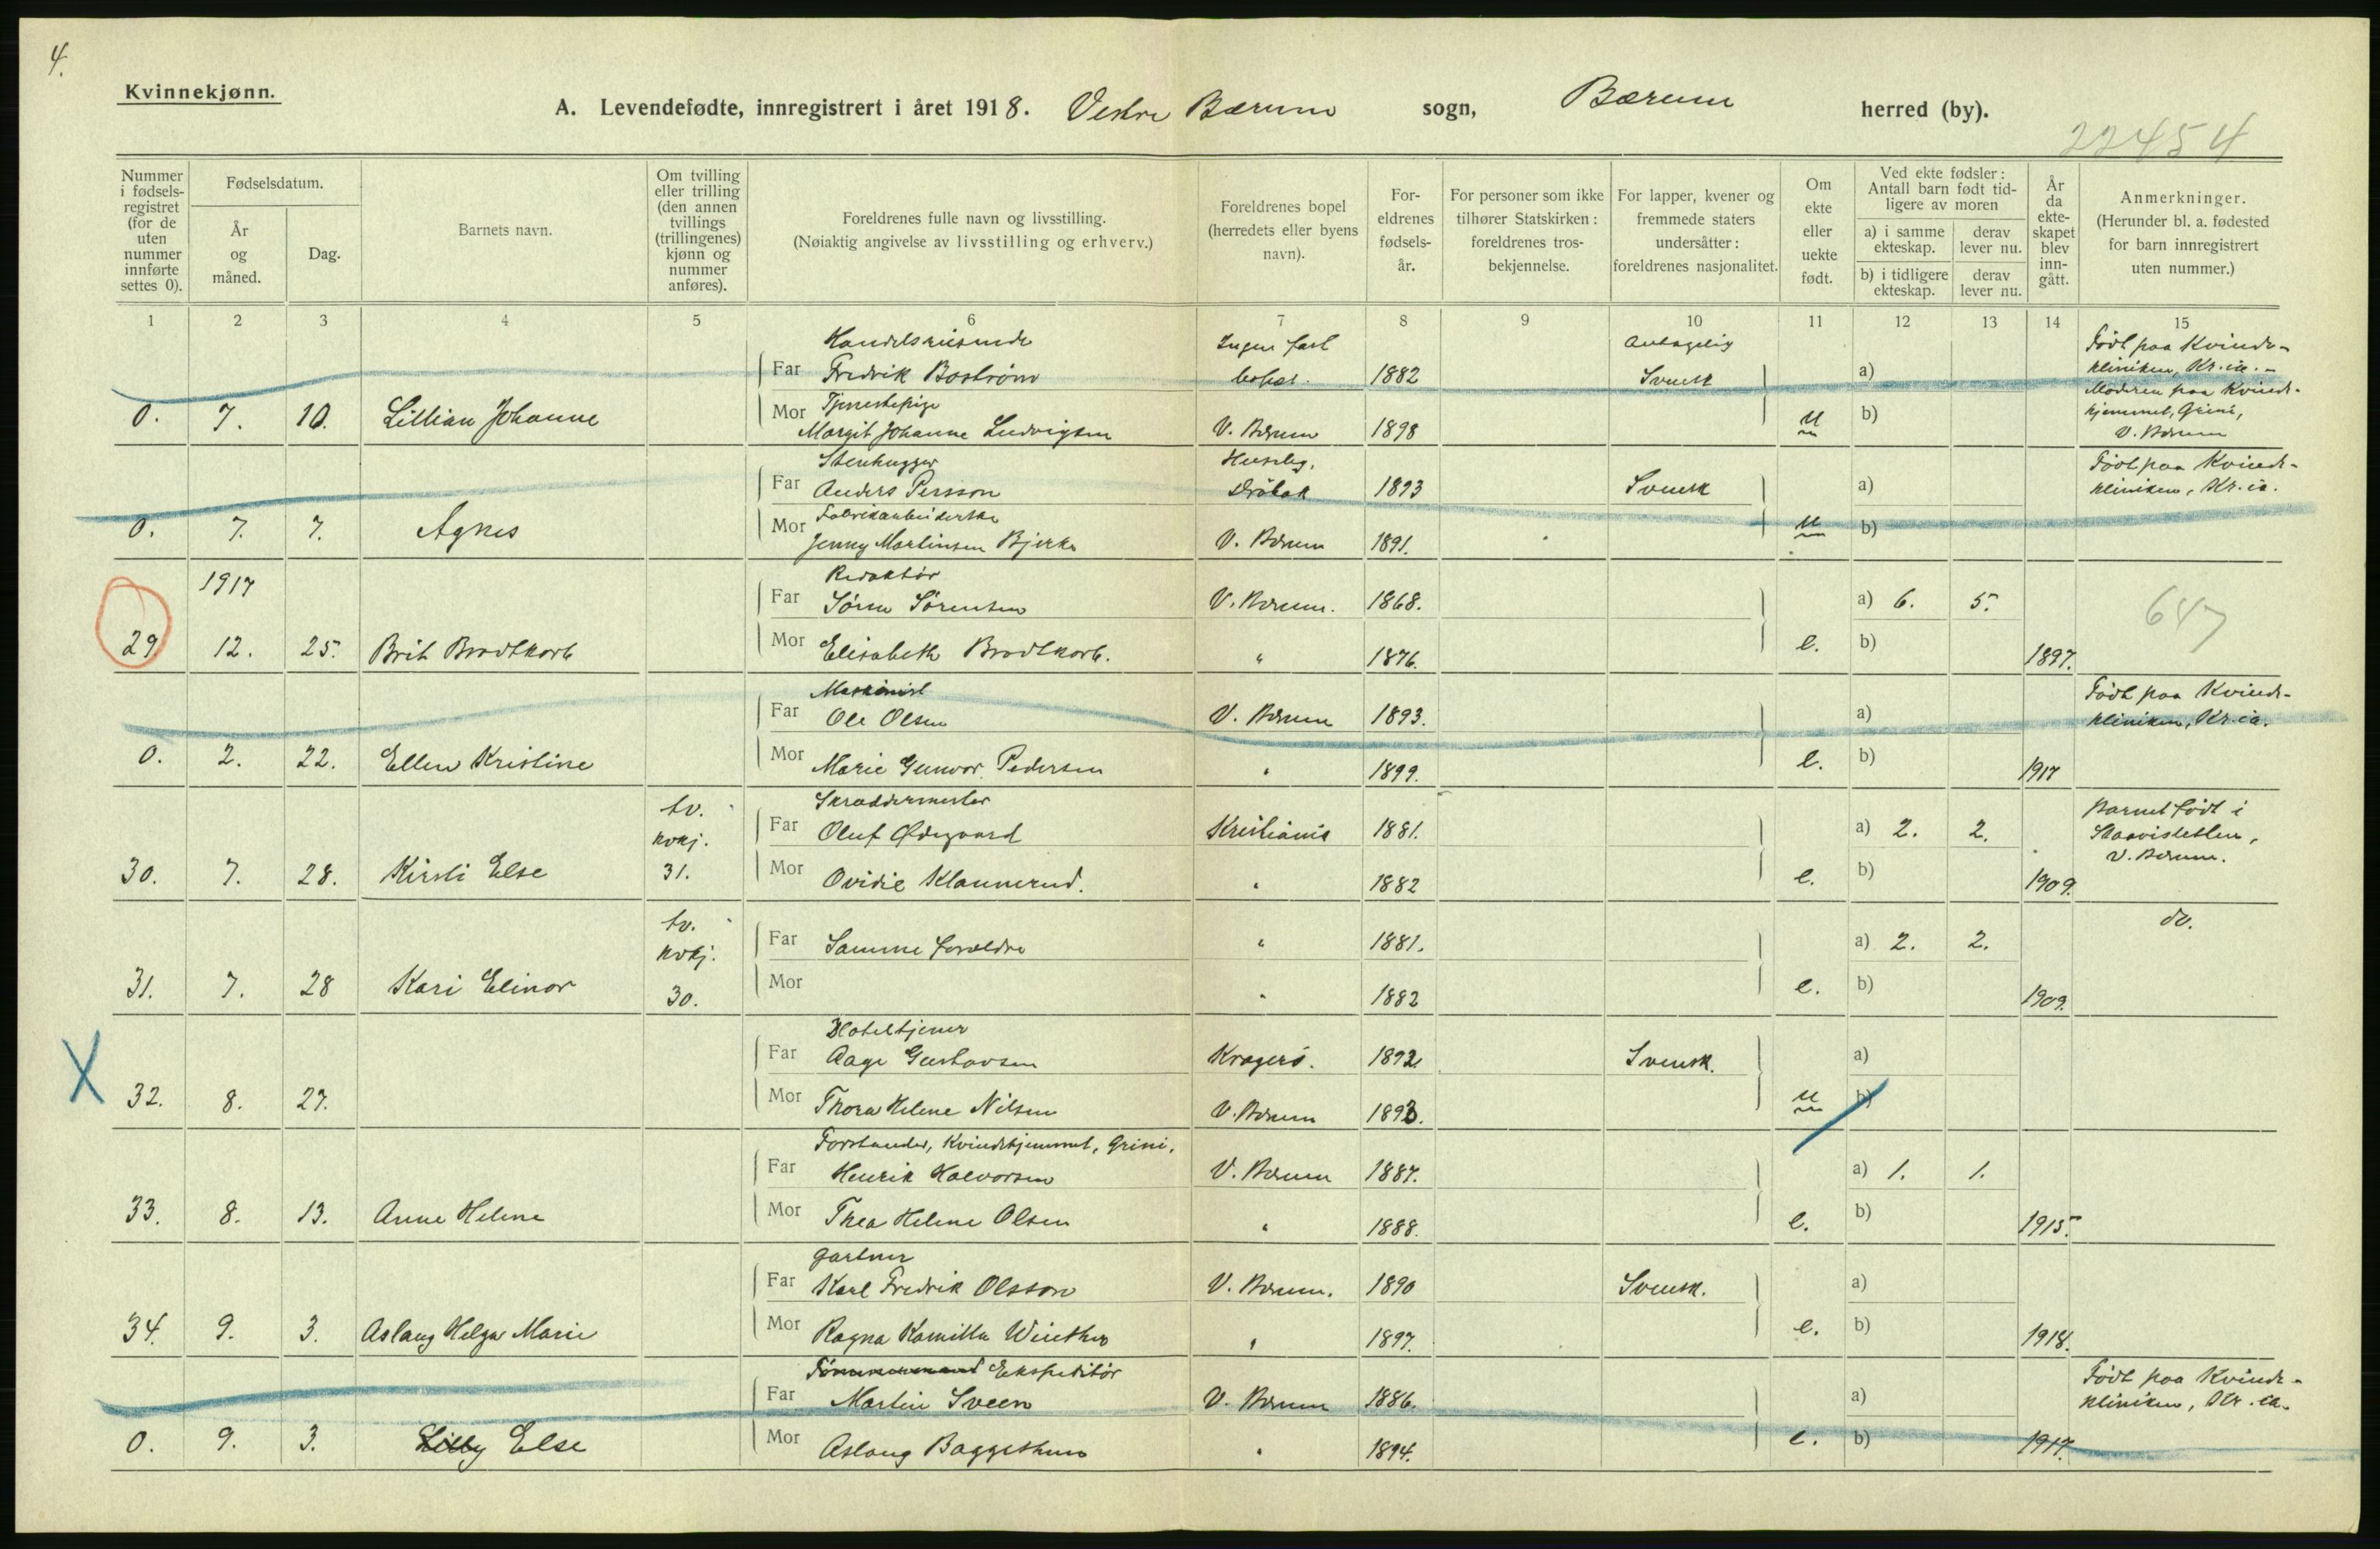 4.
Kvinnekjønn.
A. Levendefødte, innregistrert i året 1918. Vestre Bærum sogn, Bærum herred (by).
22454
Nummer i fødsels-registret (for de uten nummer innførte settes 0).
Fødselsdatum.
År og måned.
Dag.
Barnets navn.
Om tvilling eller trilling (den annen tvillings (trillingenes) kjønn og nummer anføres).
Foreldrenes fulle navn og livsstilling.
(Nøiaktig angivelse av livsstilling og erhverv.)
Foreldrenes bopel (herredets eller byens navn).
For-eldrenes fødsels-år.
For personer som ikke tilhører Statskirken: foreldrenes tros-bekjennelse.
For lapper, kvener og fremmede staters undersåtter: foreldrenes nasjonalitet.
Om ekte eller uekte født.
Ved ekte fødsler: Antall barn født tid-ligere av moren
a) i samme ekteskap.
derav lever nu.
b) i tidligere ekteskap.
derav lever nu.
År da ekte-skapet blev inn-gått.
Anmerkninger.
(Herunder bl. a. fødested for barn innregistrert uten nummer.)
1 2 3 4 5 6 7 8 9 10 11 12 13 14 15
Handelsreisende Ingen fast Antagelig Født paa Kvinde-
Far Fredrik Boström bopæl. 1882 Svensk a) kliniken, Kr.ia. -
Moderen paa Kvinde-
0. 7. 10. Lillian Johanne Mor Tjenestepige u b) hjemmet, Grini,
Margit Johanne Ludvigsen V. Bærum 1898 V. Bærum
Stenhugger Husleg. Født paa Kvinde-
Far Anders Persson Drøbak 1893 Svensk a) kliniken, Kr.ia.
0. 7. 7. Agnes Mor Fabrikarbeiderske u b)
Jenny Martinsen Bjerke V. Bærum 1891.
1917 Redaktør
Far Sören Sörensen V. Bærum. 1868. a) 6. 5. 647
29. 12. 25. Brit Brodtkorb Mor Elisabeth Brodtkorb. " 1876. e. b) 1897.
Maskinist Født paa Kvinde-
Far Ole Olsen V. Bærum 1893. a) kliniken, Kr.ia.
0. 2. 22. Ellen Kristine Mor Marie Gunvor Pedersen " 1899. e. b) 1917
tv. Skræddermester Barnet født i
kvkj. Far Oluf Ødegaard Kristiania 1881. a) 2. 2.
V. Bærum.
30. 7. 28. Kirsti Else 31. Mor Ovidie Klannerud. " 1882 e. b) 1909.
tv. do.
kvkj. Far Samme forældre " 1881. a) 2. 2.
31. 7. 28 Kari Elinor 30. Mor " 1882 e. b) 1909.
Hoteltjener
Far Aage Gustavsen Kragerø. 1892. Svensk. a)
X 32. 8. 27. Mor Thora Helene Nilsen V. Bærum 1893. u b)
Forstander, Kvindehjemmet, Grini.
Far Henrik Halvorsen V. Bærum 1887. a) 1. 1.
33. 8. 13. Anne Helene Mor Thea Helene Olsen " 1888. e. b) 1915.
Gartner
Far Karl Fredrik Olsson V. Bærum. 1890 Svensk. a)
34. 9. 3. Aslaug Helga Marie Mor Ragna Kamilla Winther " 1897. e. b) 1918.
Ekspeditør Født paa Kvinde-
Far Martin Sveen V. Bærum 1886. a) kliniken, Kr.ia.
0. 9. 3. Lilly Else Mor Aslaug Baggethun " 1894. e. b) 1917.